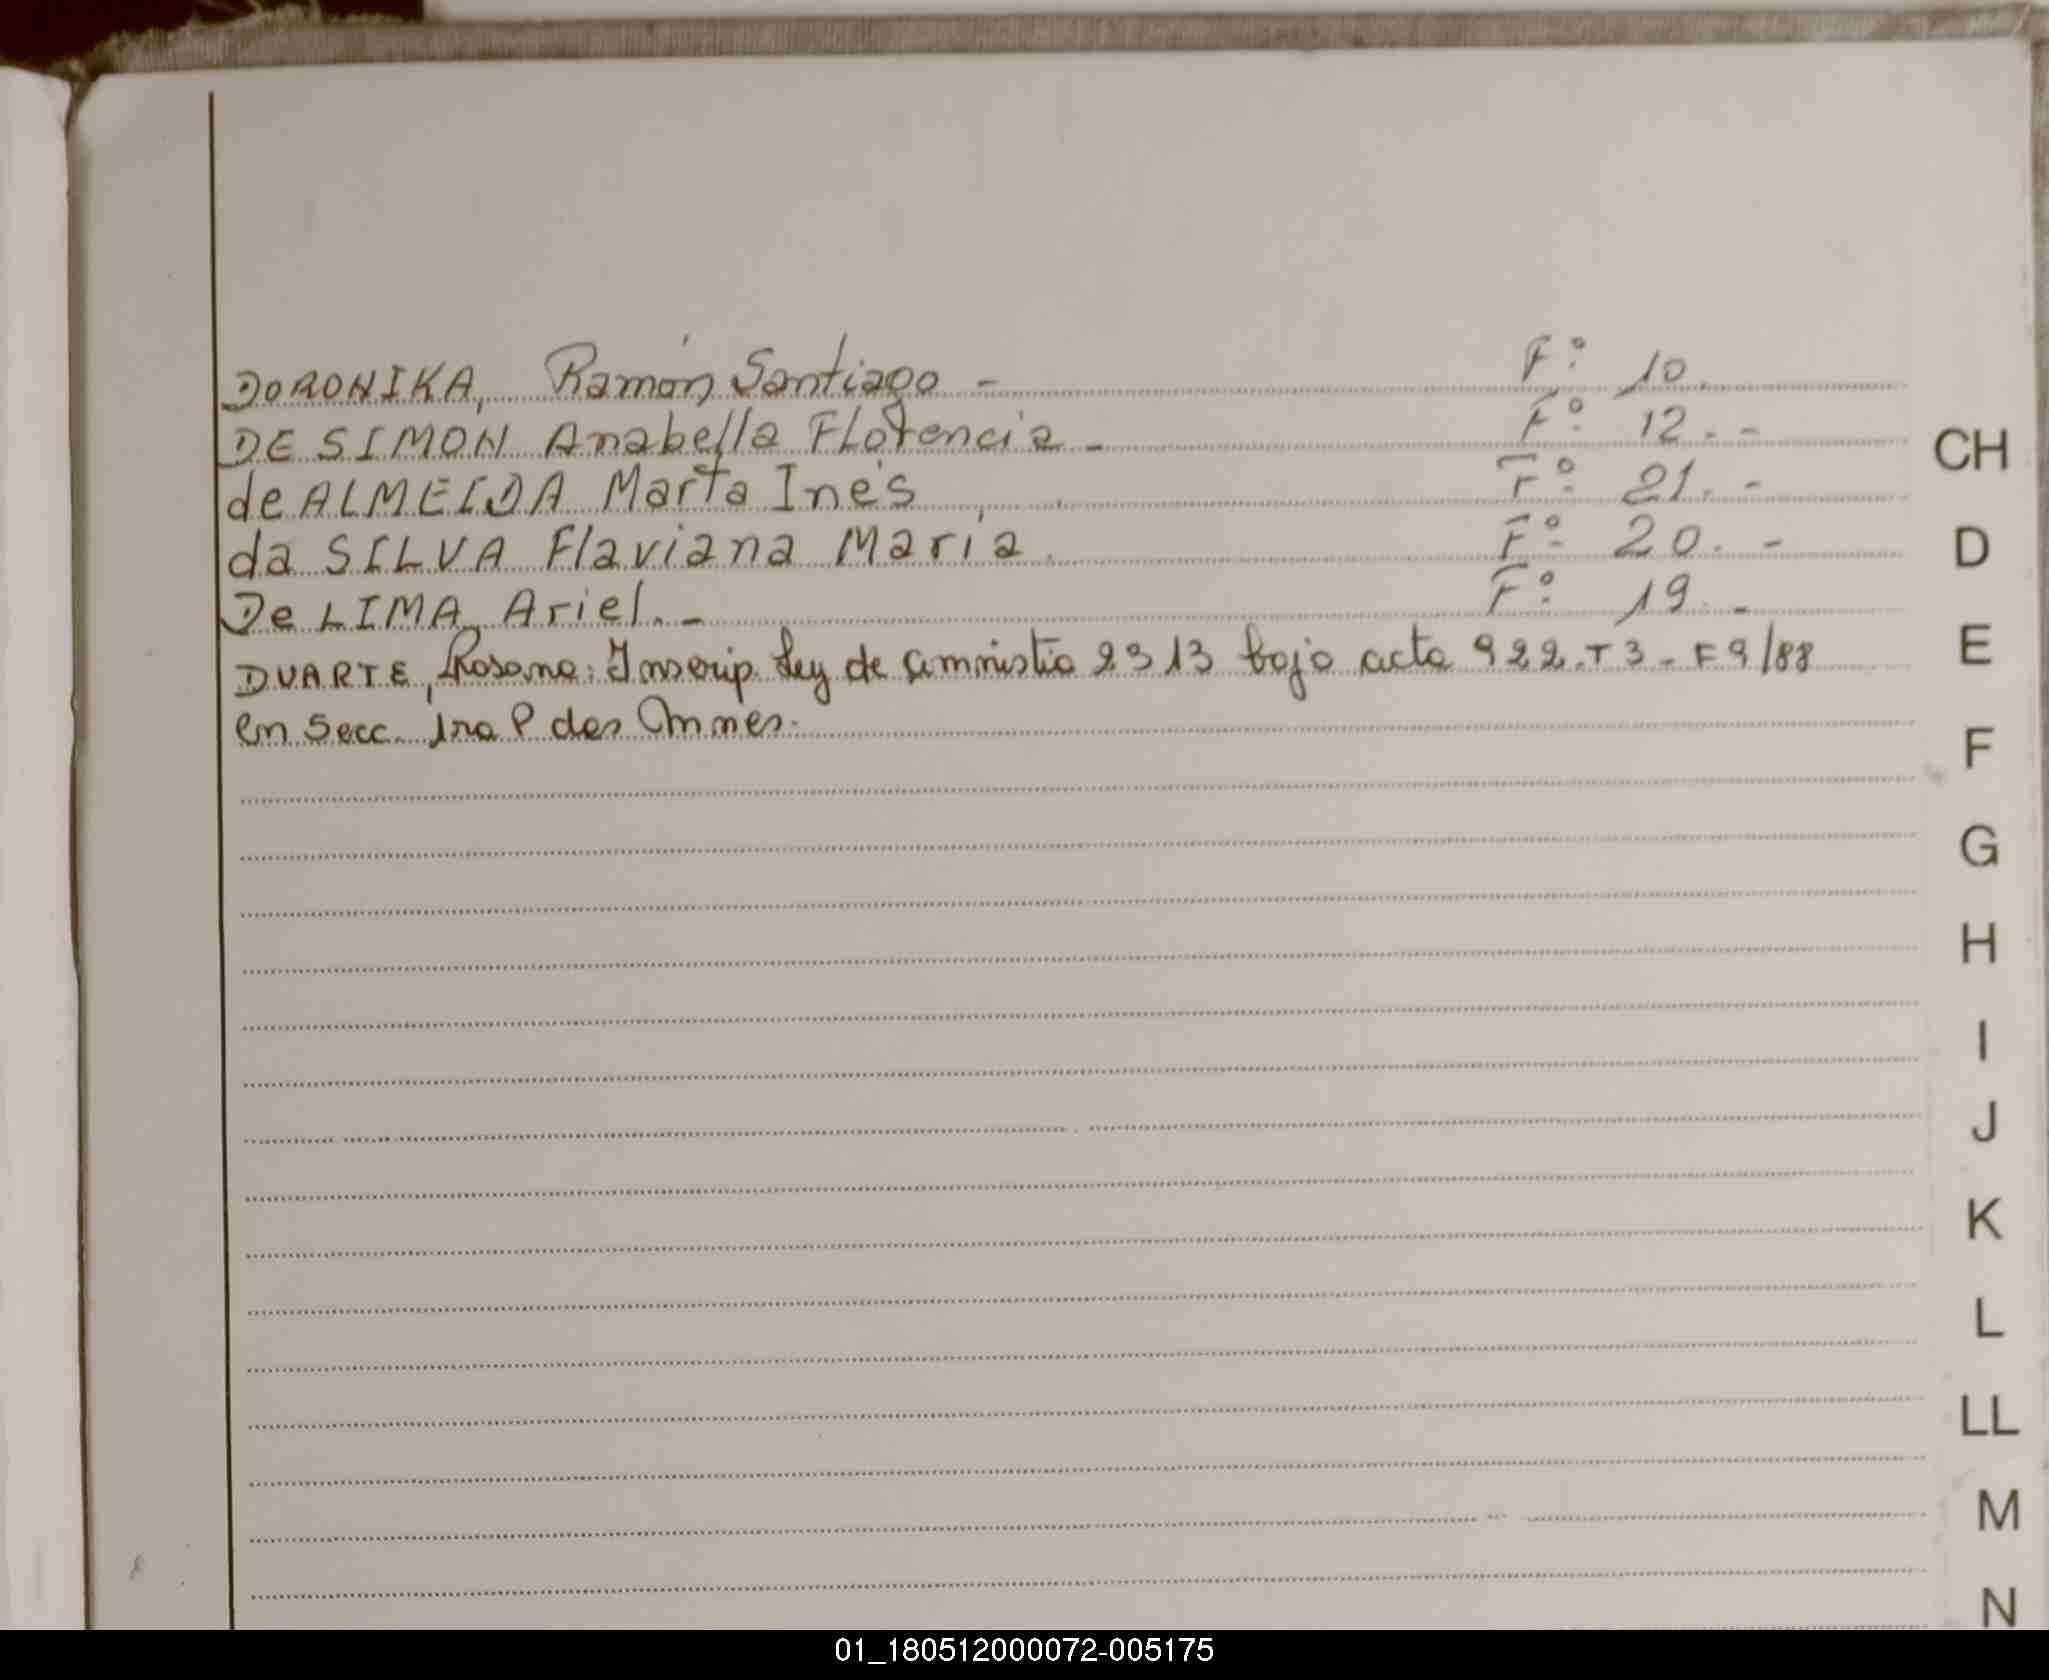 DORONIKA, Ramón Santiago - F° 10.
DE SIMON Anabella Florencia - F° 12. -
de ALMEIDA Marta Inés F° 21. -
da SILVA Flaviana María. F° 20. -
De LIMA Ariel. - F° 19. -
DUARTE, Rosana: Inscrip. Ley de amnistia 2313 bajo acta 922. T3 - F9/88
en Secc. 1ra P de
CH
D
E
F
G
H
I
J
K
L
LL
M
N
01_180512000072-005175